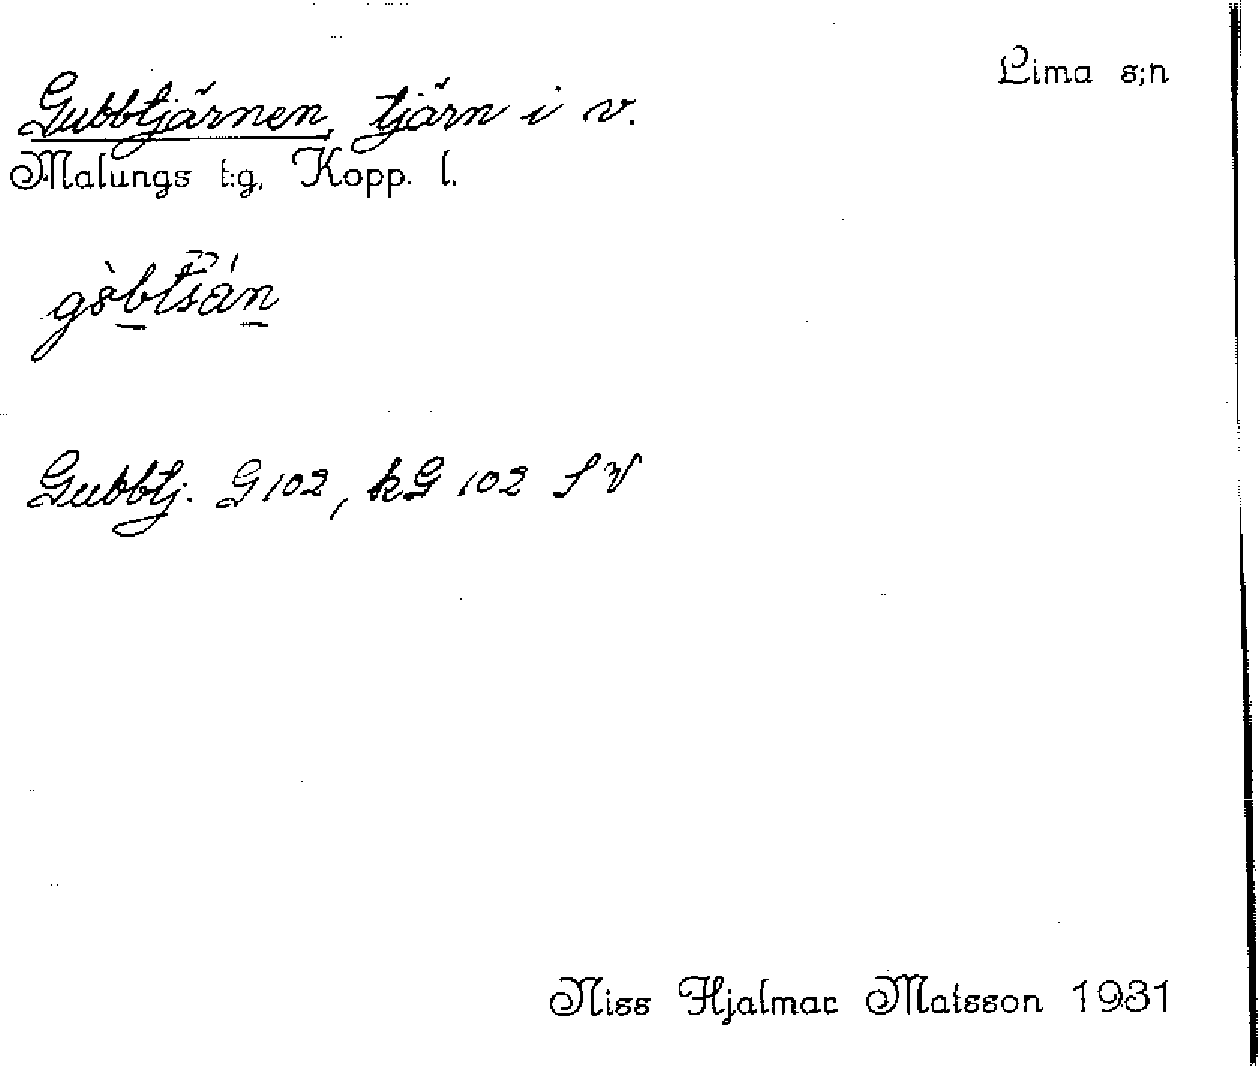 Lima s;n
Gubbtjärnen, tjärn i v.
Malungs t:g, Kopp. l.
Gubbtj. G 102, kG 102 SV
Niss Hjalmar Matsson 1931